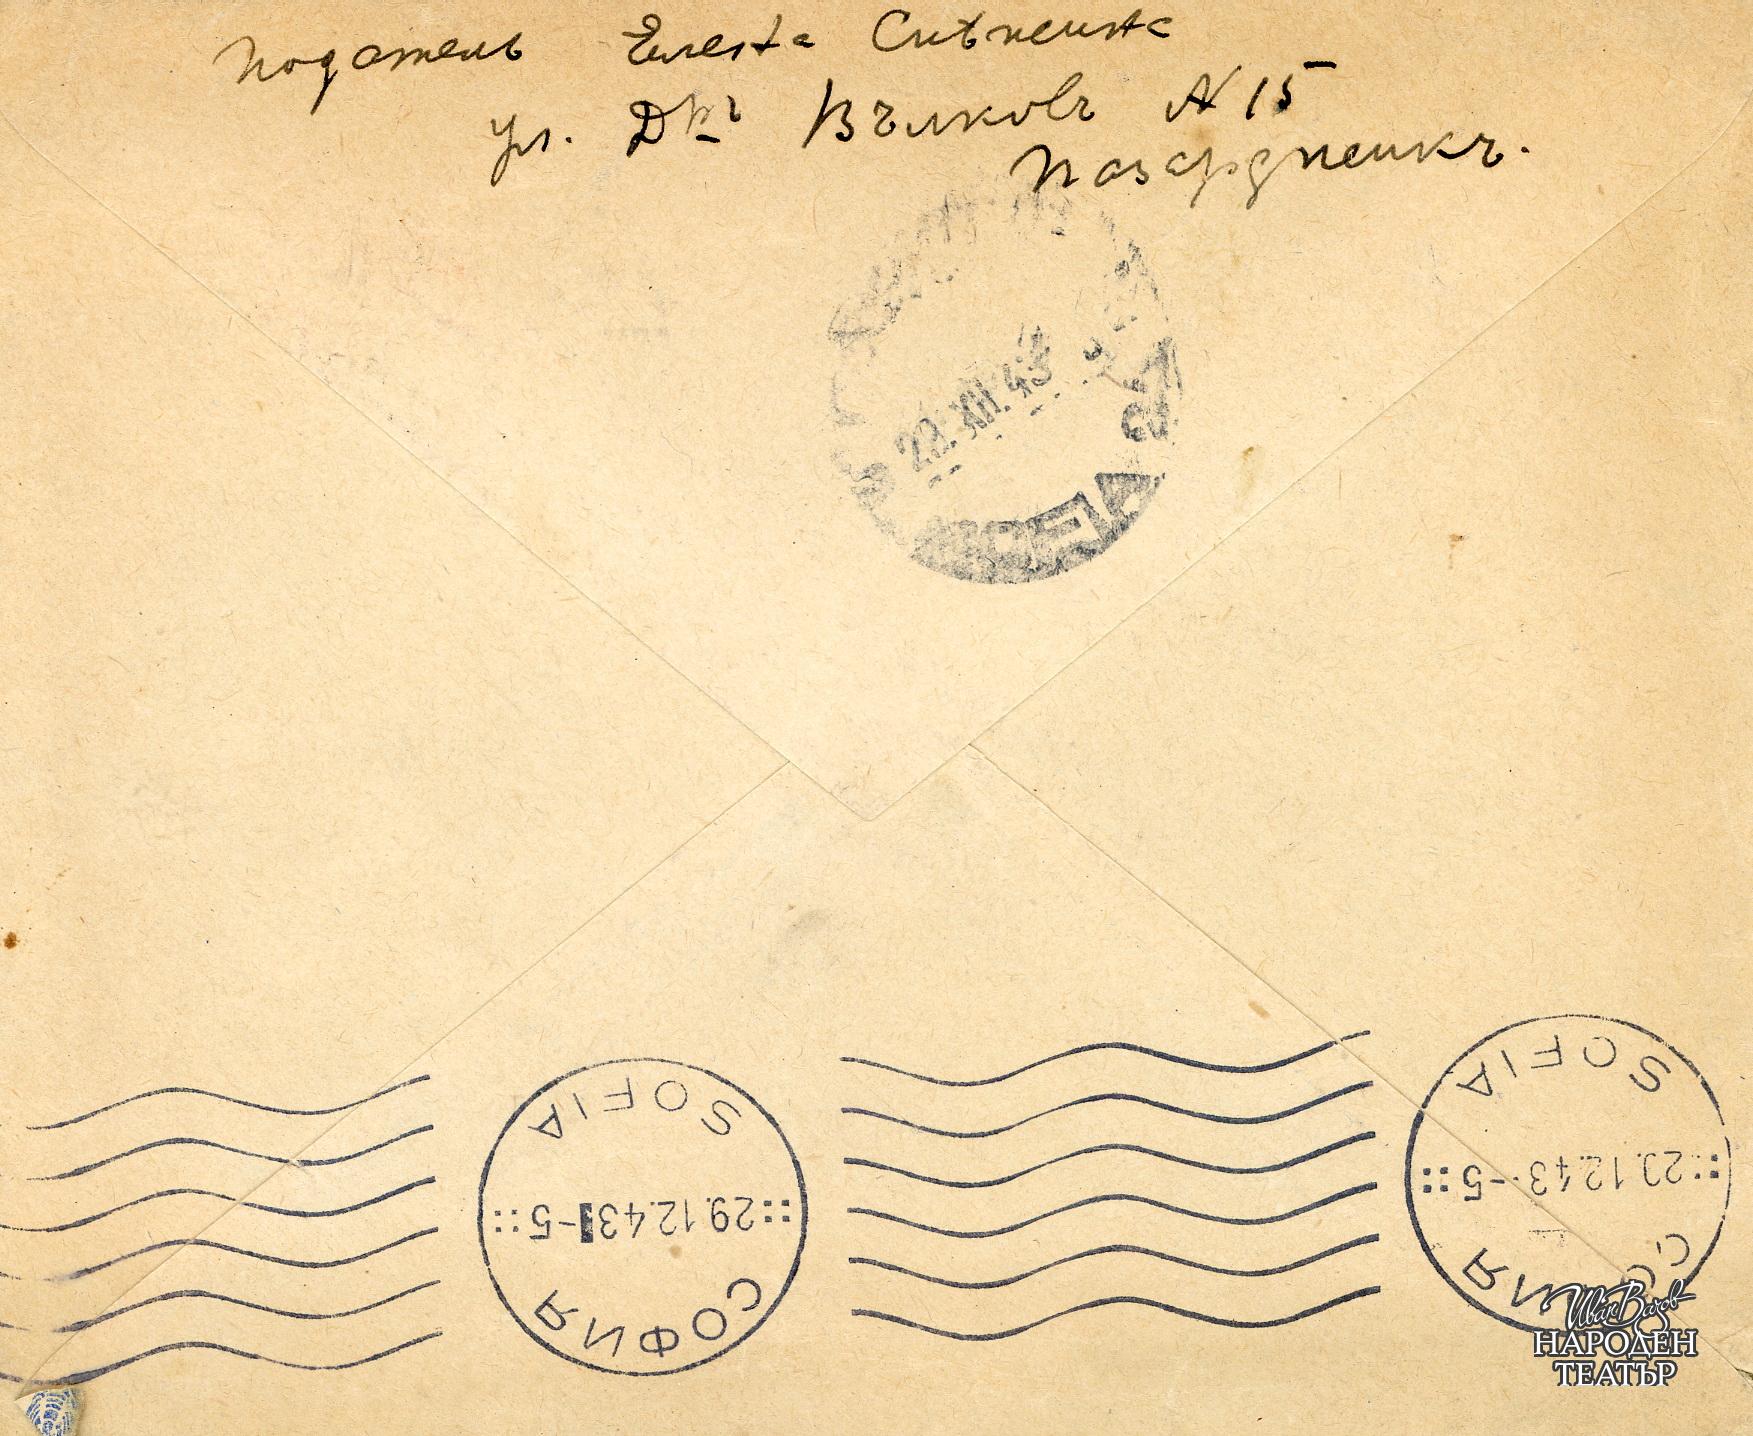 Подателъ Елена Снѣжина
ул. Д-ръ Вълковъ N 15
Пазарджикъ.
22.XII.43
SOFIA
29.12.43-5
СОФИЯ
SOFIA
29.12.43-5
СОФИЯ
Иван Вазов
НАРОДЕН
ТЕАТЪР